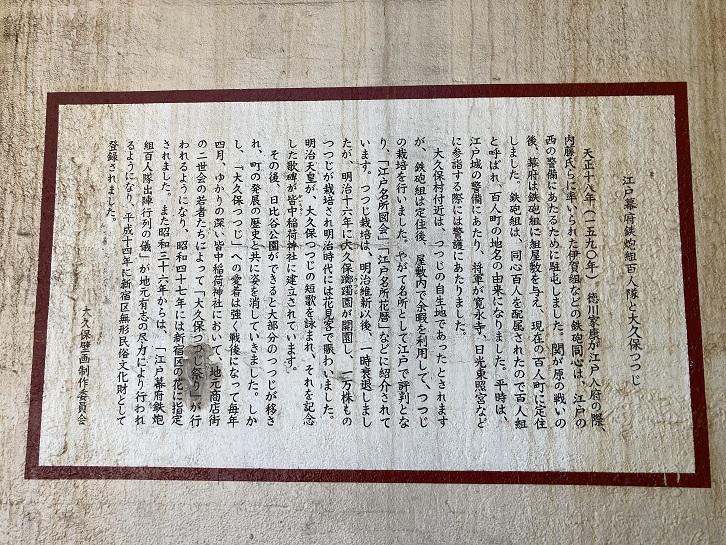 江戸幕府鉄炮組百人隊と大久保つつじ
天正十八年(一五九〇年)、徳川家康が江戸入府の際、
内藤氏らに率いられた伊賀組などの鉄砲同心は、江戸の
西の警備にあたるために駐屯しました。関が原の戦いの
後、幕府は鉄炮組に組屋敷を与え、現在の百人町に定住
しました。鉄炮組は、同心百人を配属されたので百人組
と呼ばれ、百人町の地名の由来になりました。平時は、
江戸城の警備にあたり、将軍が寛永寺、日光東照宮など
に参詣する際には警護にあたりました。
大久保村付近は、つつじの自生地であったとされます
が、鉄砲組は定住後、屋敷内で余暇を利用して、つつじ
の栽培を行いました。やがて名所として江戸で評判とな
り、「江戸名所図会」「江戸名所花暦」などに紹介されて
います。つつじ栽培は、明治維新以後、一時衰退しまし
たが、明治十六年に大久保躑躅園が開園し、一万株もの
つつじが栽培され明治時代には花見客で賑わいました。
明治天皇が、大久保つつじの短歌を詠まれ、それを記念
した歌碑が皆中稲荷神社に建立されています。
その後、日比谷公園ができると大部分のつつじが移さ
れ、町の発展の歴史と共に姿を消していきました。しか
し、「大久保つつじ」への愛着は強く戦後になって毎年
四月、ゆかりの深い皆中稲荷神社において、地元商店街
の二世会の若者たちによって「大久保つつじ祭り」が行
われるようになり、昭和四十七年には新宿区の花に指定
されました。また昭和三十六年からは、「江戸幕府鉄炮
組百人隊出陣行列の儀」が地元有志の尽力により行われ
るようになり、平成十四年に新宿区無形民俗文化財として
登録されました。
大久保壁画制作委員会